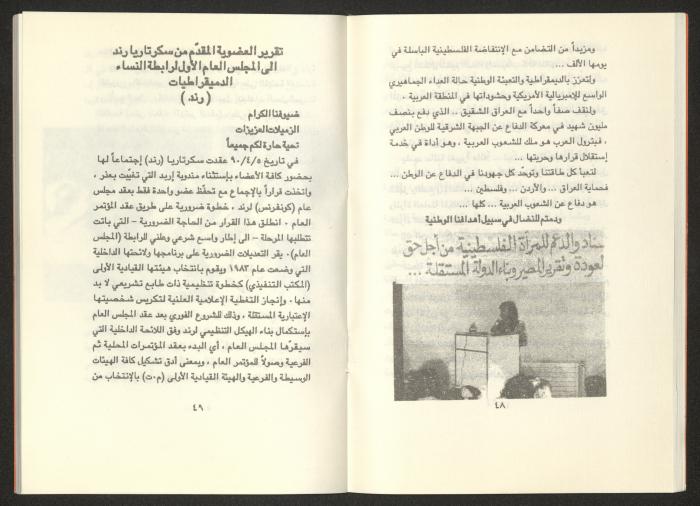 ومزيداً من التضامن مع الإنتفاضة الفلسطينية الباسلة في
يومها الألف ...
ولنعزز بالديمقراطية والتعبئة الوطنية حالة العداء الجماهيري
الواسع للإمبريالية الأمريكية وحشوداتها في المنطقة العربية .
ولنقف صفاً واحداً مع العراق الشقيق .. الذي دفع بنصف
مليون شهيد في معركة الدفاع عن الجبهة الشرقية للوطن العربي
، فبترول العرب هو ملك للشعوب العربية ، وهو أداة في خدمة
إستقلال قرارها وحريتها ...
لتعبأ كل طاقتنا وتوحّد كل جهودنا في الدفاع عن الوطن ...
فحماية العراق ... والأردن ... وفلسطين ...
هو دفاع عن الشعوب العربية ... كلها ...
ودمتم للنضال في سبيل أهدافنا الوطنية
ناد والدعم للمرأة الفلسطينية من أجل حق
لعودة وتقرير المصير وبناء الدولة المستقلة ...
٤٨
تقرير العضوية المقدّم من سكرتاريا رند
الى المجلس العام الأول لرابطة النساء
الديمقراطيات
( رند )
ضيوفنا الكرام
الزميلات العزيزات
تحية حارة لكم جميعاً
في تاريخ ٩٠/٤/٥ عقدت سكرتاريا (رند) إجتماعاً لها
بحضور كافة الأعضاء بإستثناء مندوبة إربد التي تغيّبت بعذر ،
واتخذت قراراً بالإجماع مع تحفّظ عضو واحدة فقط بعقد مجلس
عام (كونفرنس) لرند . خطوة ضرورية على طريق عقد المؤتمر
العام . انطلق هذا القرار من الحاجة الضرورية – التي باتت
تتطلبها المرحلة – الى إطار واسع شرعي وطني للرابطة (المجلس
العام)، يقر التعديلات الضرورية على برنامجها ولائحتها الداخلية
التي وضعت عام ١٩٨٣ ويقوم بانتخاب هيئتها القيادية الأولى
(المكتب التنفيذي) كخطوة تنظيمية ذات طابع تشريعي لا بد
منها . وإنجاز التغطية الإعلامية العلنية لتكريس شخصيتها
الإعتبارية المستقلة ، وذلك للشروع الفوري بعد عقد المجلس العام
بإستكمال بناء الهيكل التنظيمي لرند وفق اللائحة الداخلية التي
سيقرّها المجلس العام ، أي البدء بعقد المؤتمرات المحلية ثم
الفرعية وصولاً للمؤتمر العام ، وبمعنى أدق تشكيل كافة الهيئات
الوسيطة والفرعية والهيئة القيادية الأولى (م.ت) بالإنتخاب من
٤٩